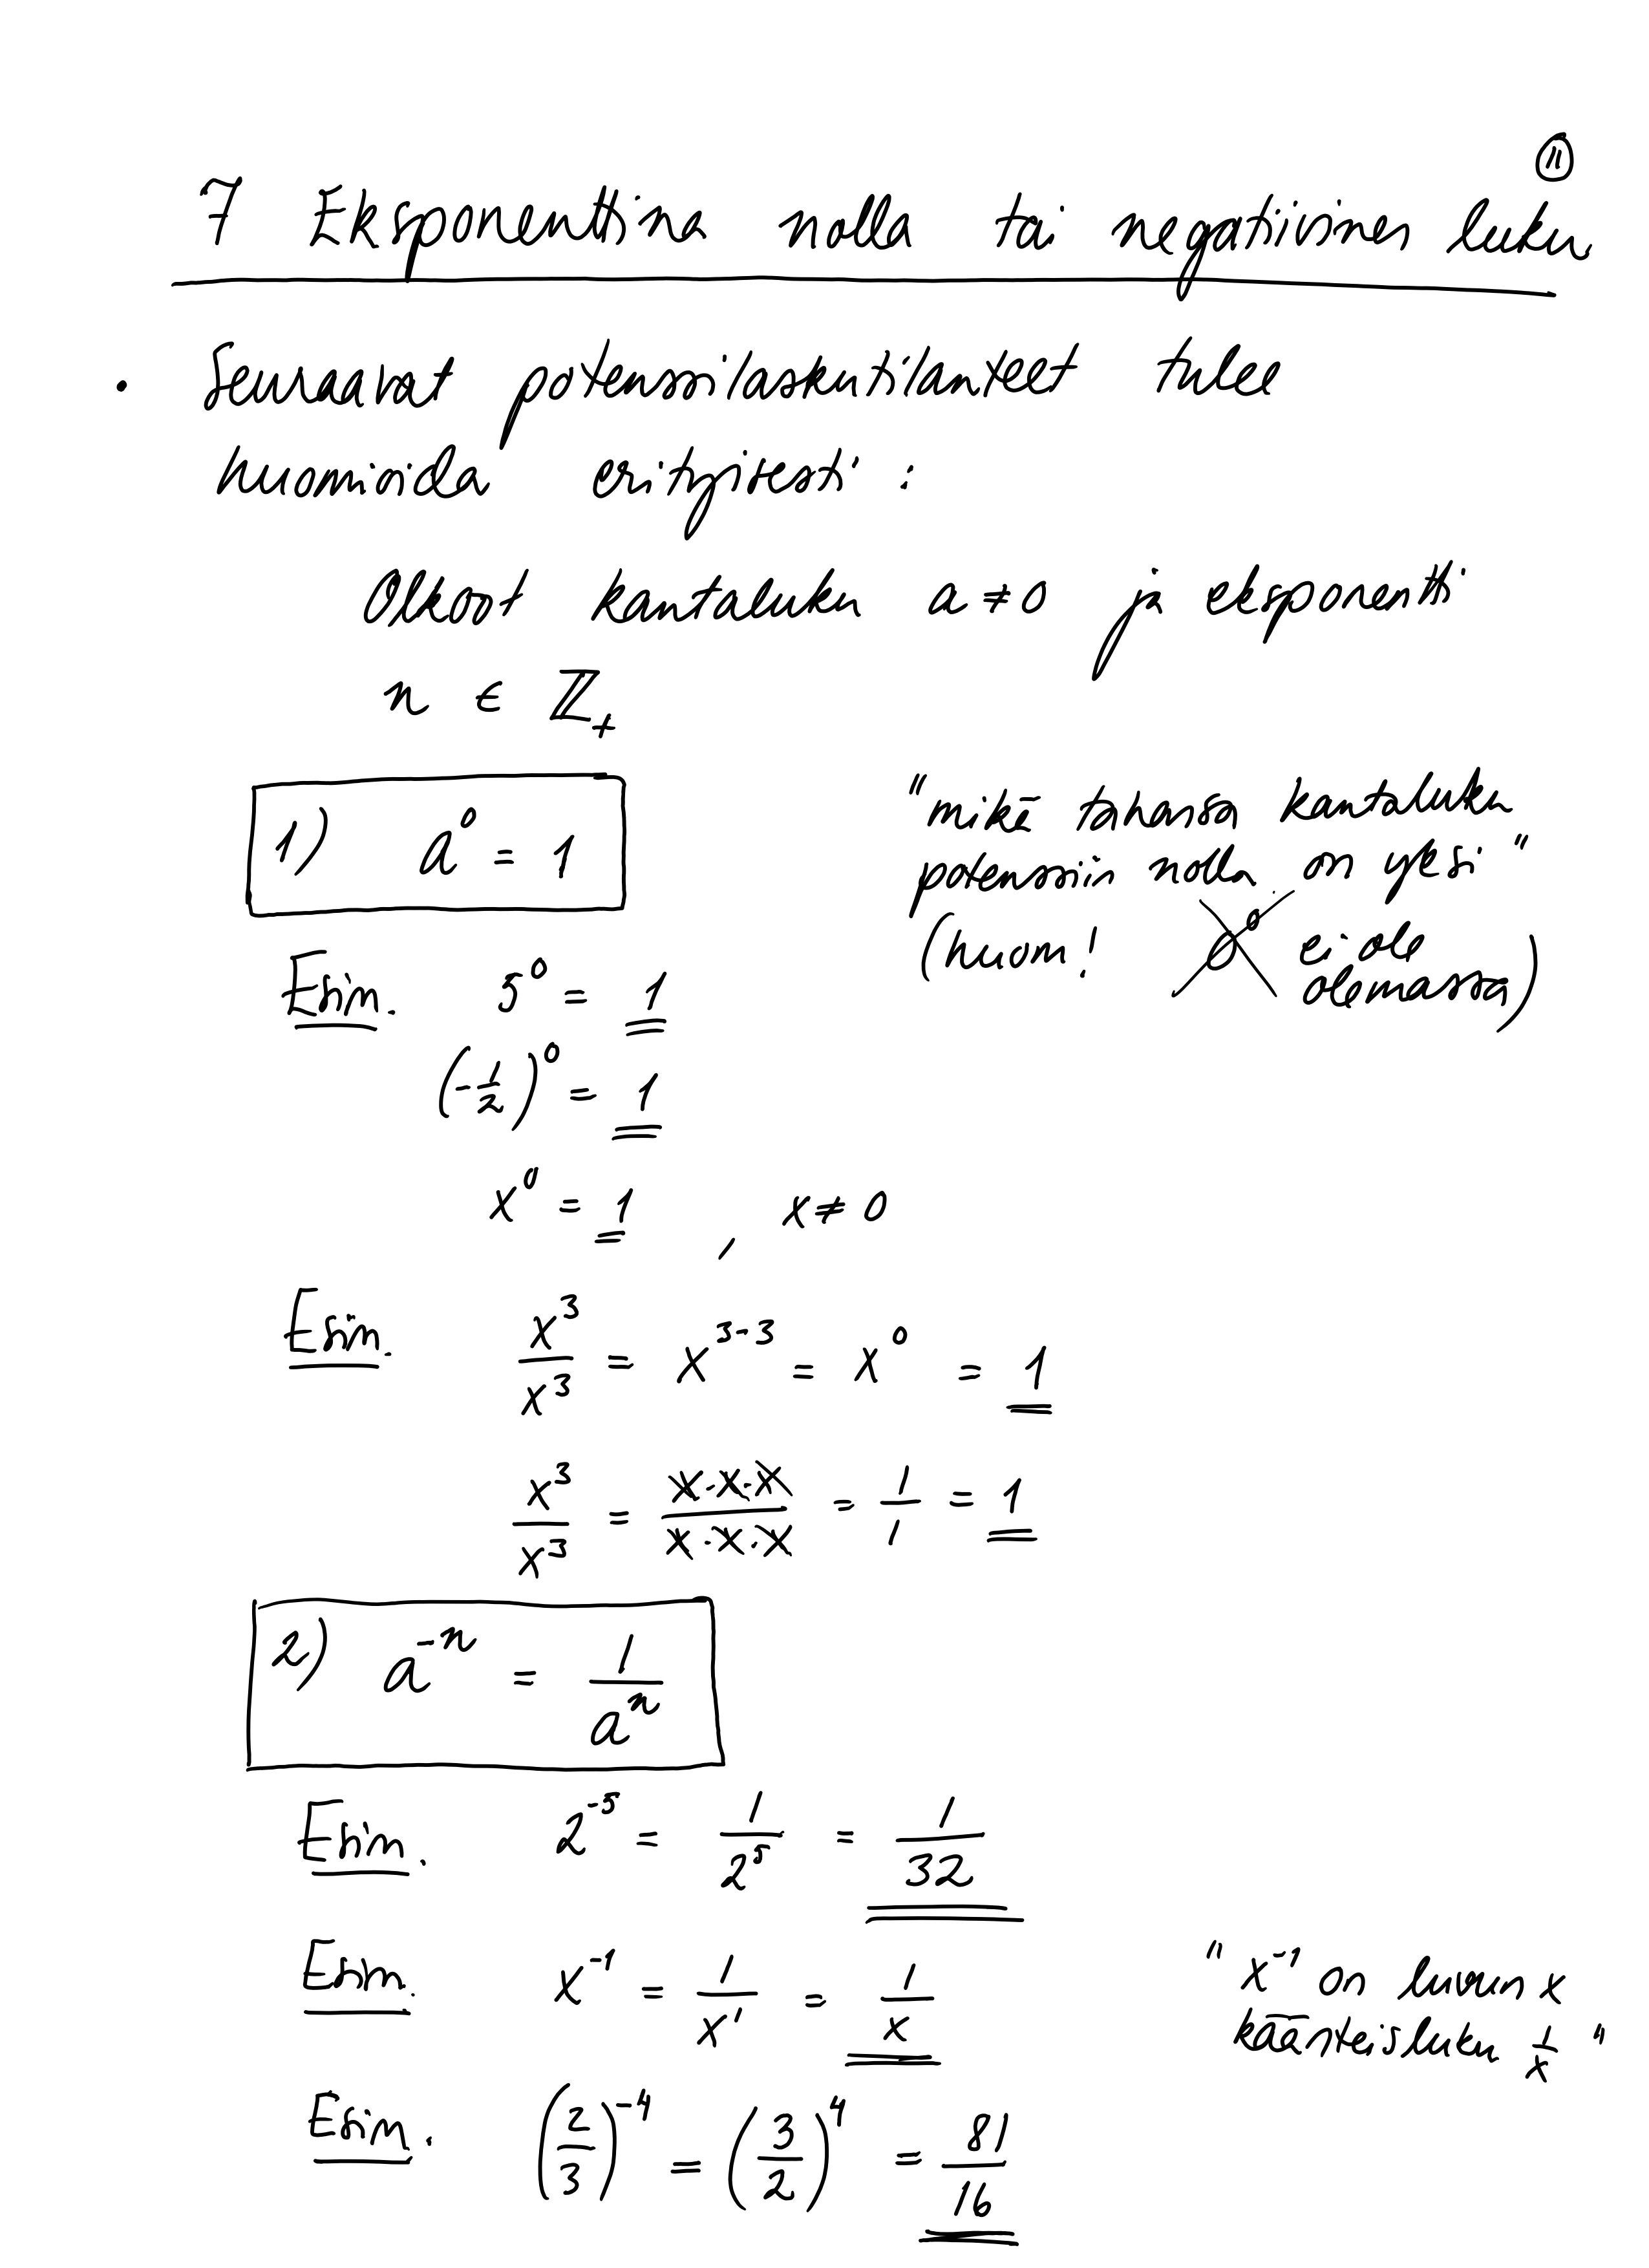 11
7 Eksponenttina nolla tai negatiivinen luku
• Seuraavat potenssilaskutilanteet tulee
huomioida erityisesti :
Olkoot kantaluku a ≠ 0 ja eksponentti
n ∈ ℤ₊
1) a⁰ = 1
"mikä tahansa kantaluku
potenssiin nolla on yksi"
(huom! 0⁰ ei ole
olemassa)
Esim. 5⁰ = 1
(-1/2)⁰ = 1
x⁰ = 1 , x ≠ 0
Esim. x³/x³ = x³⁻³ = x⁰ = 1
x³/x³ = x·x·x/x·x·x = 1/1 = 1
2) a⁻ⁿ = 1/aⁿ
Esim. 2⁻⁵ = 1/2⁵ = 1/32
Esim. x⁻¹ = 1/x¹ = 1/x
"x⁻¹ on luvun x
käänteisluku 1/x"
Esim. (2/3)⁻⁴ = (3/2)⁴ = 81/16